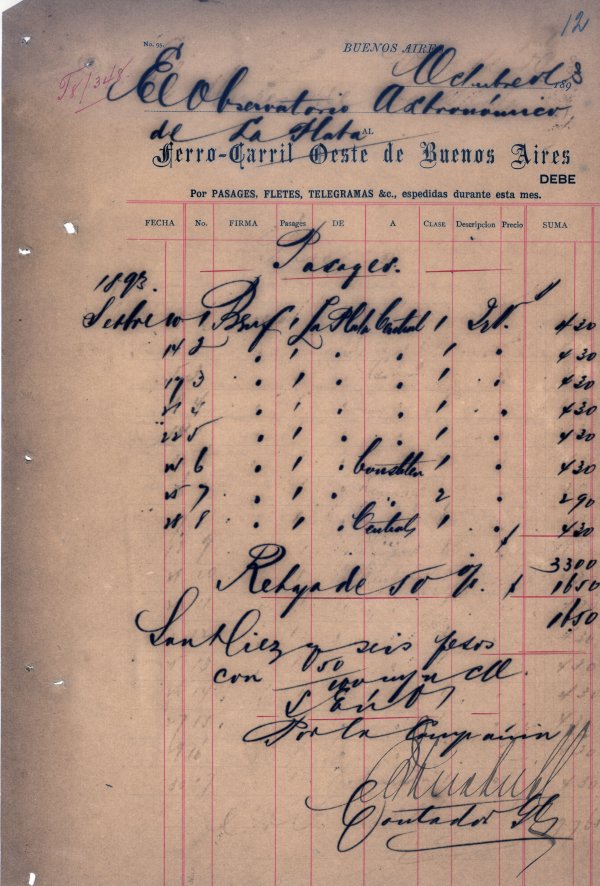 12
No. 95.
BUENOS AIRES
Octubre 189 3
El Observatorio Astronómico
de La Plata AL
Ferro-Carril Oeste de Buenos Aires
DEBE
Por PASAGES, FLETES, TELEGRAMAS &c., espedidas durante esta mes.
FECHA No. FIRMA Pasages DE A CLASE Descripcion Precio SUMA
Pasages.
1893.
10 1 Beuf 1 La Plata Central 1 4 30
14 2 " 1 " " 1 " 4 30
19 3 " 1 " " 1 " 4 30
21 4 " 1 " " 1 " 4 30
22 5 " 1 " " 1 " 4 30
24 6 " 1 " 1 " 4 30
25 7 " 1 " " 2 " 2 90
28 8 " 1 " Central 1 " 4 30
33 00
Rebaja de 50 % $ 16 50
16 50
Son diez y seis pesos
con 50/100 m/n
S. E. ú O.
Por la Compañia
Contador